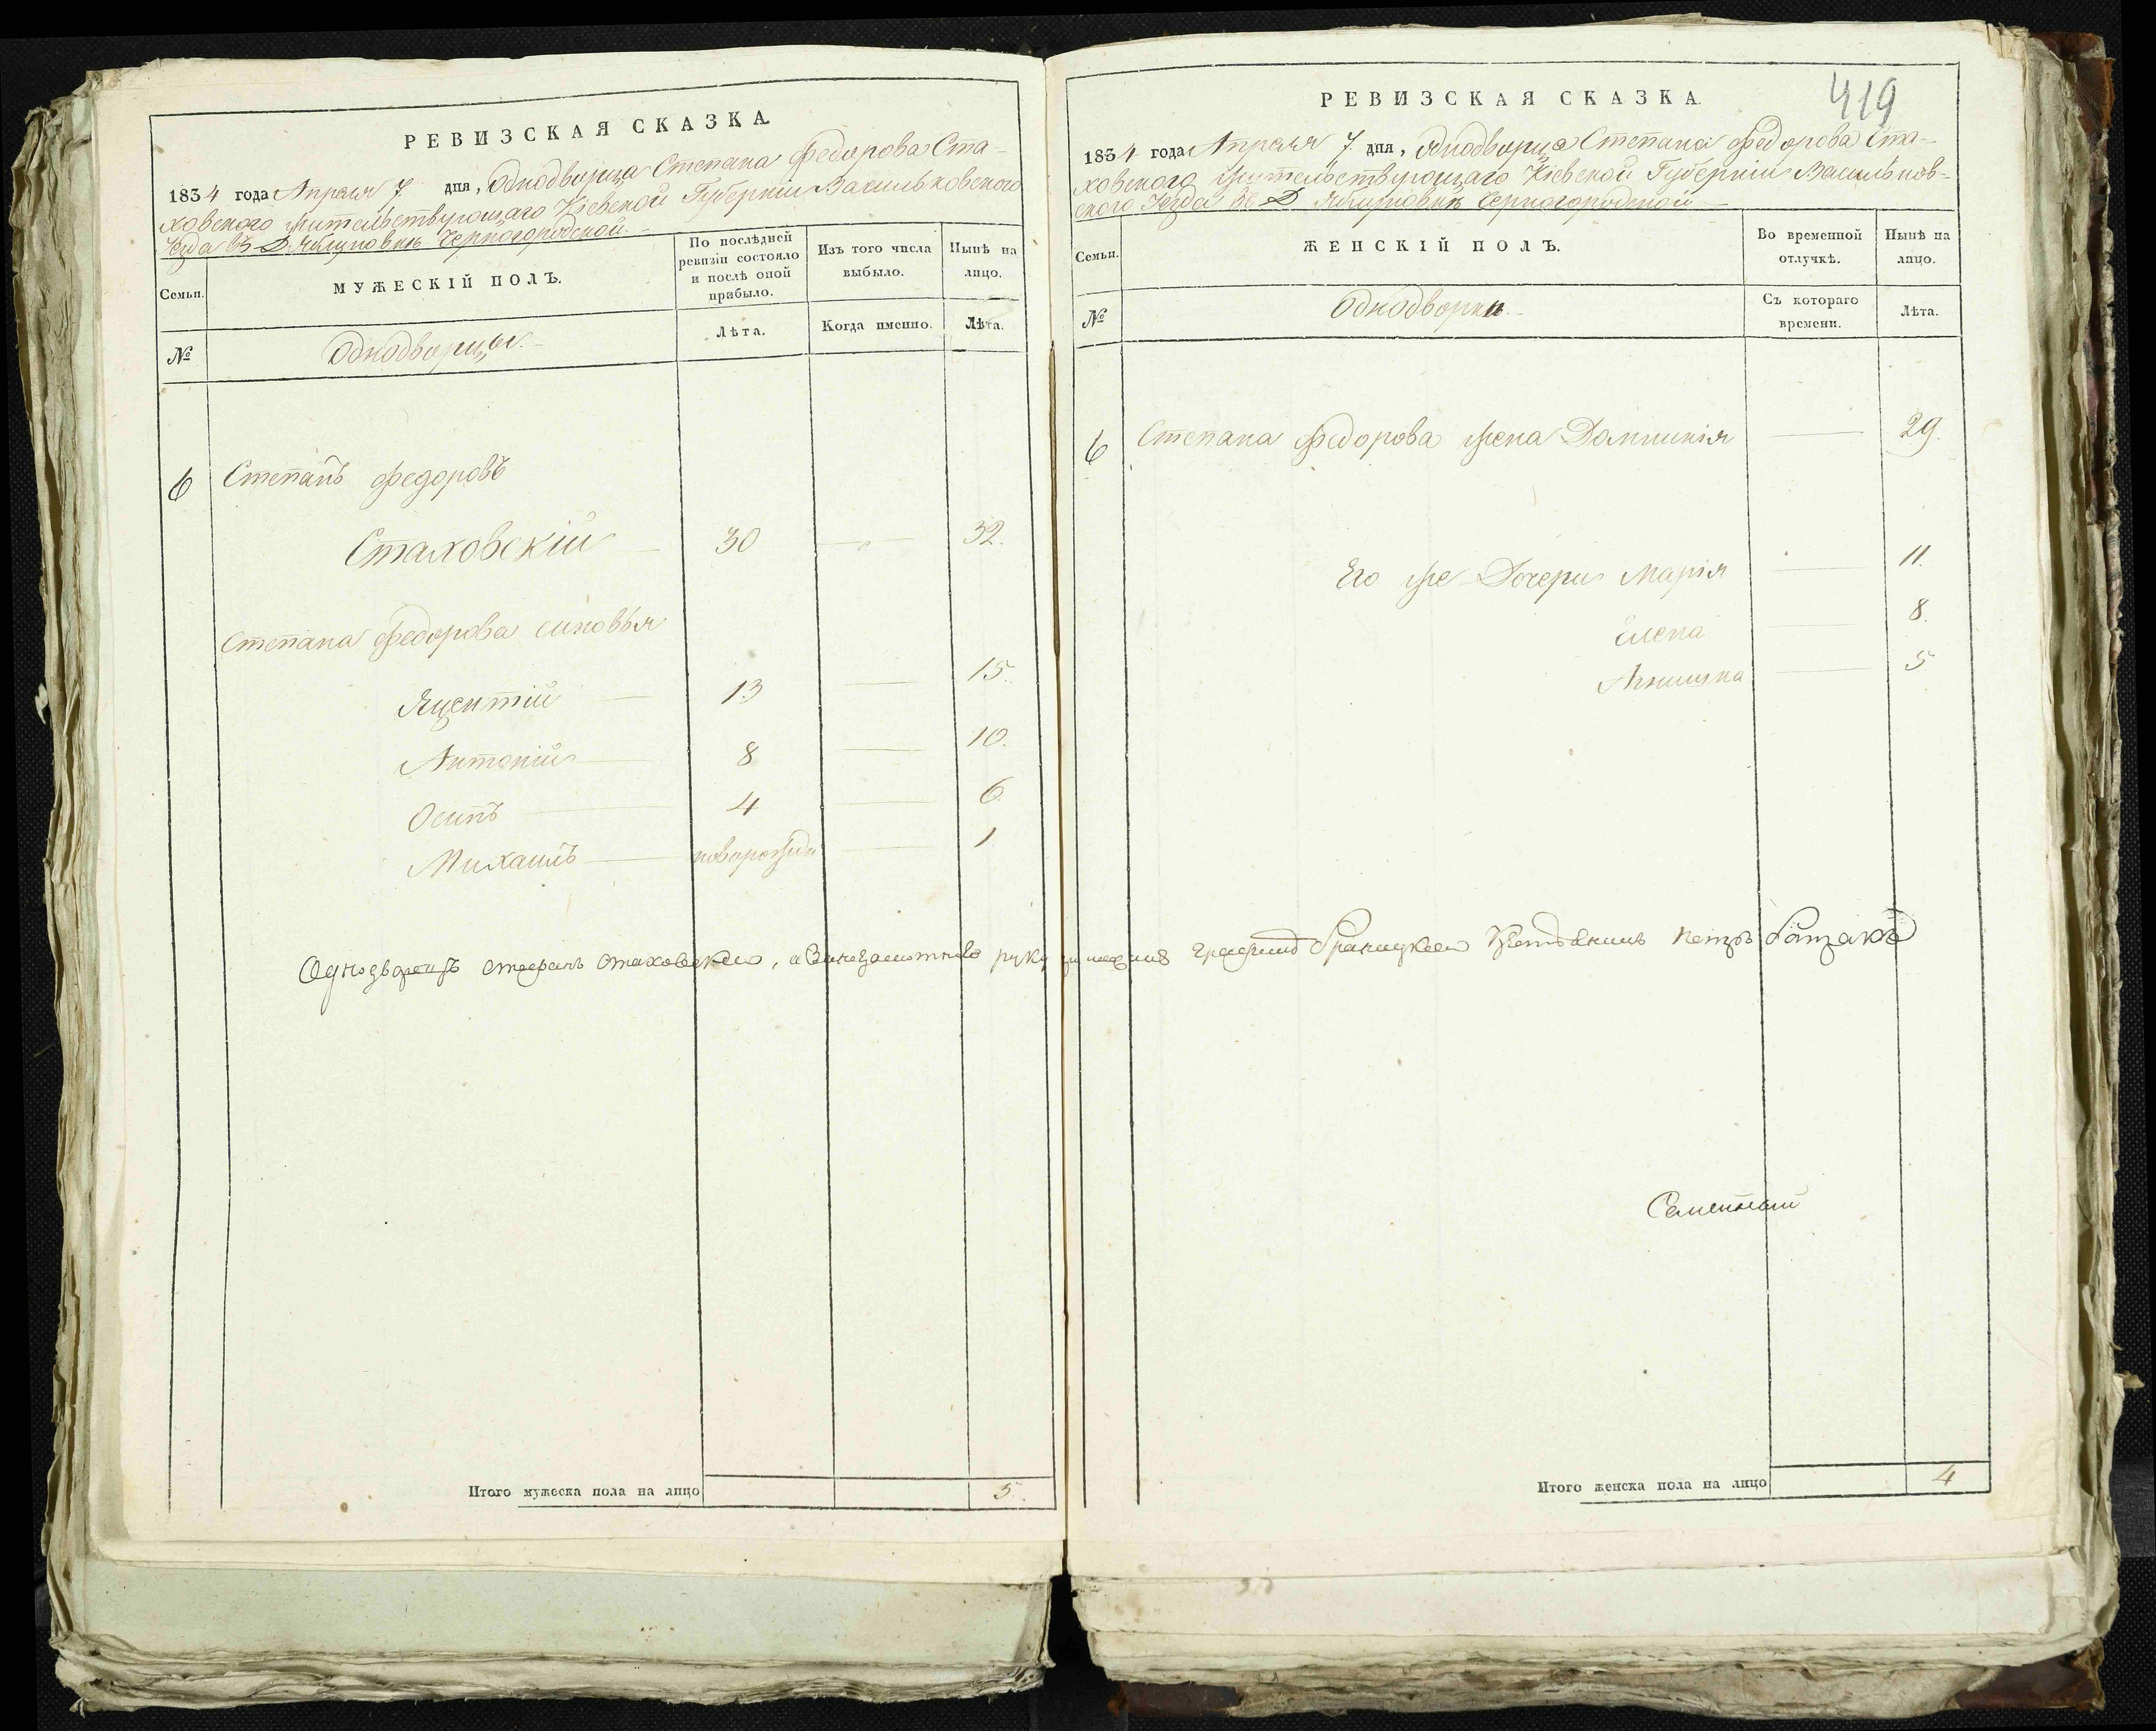 РЕВИЗСКАЯ СКАЗКА
1834 года Апреля 7 дня, Однодворца Степана Федорова Ста-
ховского жительствующаго Кіевской Губерніи Васильковского
Уезда въ Д. Яблуновкѣ Черногородской
Семьи.
МУЖЕСКІЙ ПОЛЪ.
По послѣдней ревизіи состояло и послѣ оной прибыло.
Изъ того числа выбыло.
Нынѣ на лицо.
№
Однодворцы.
Лѣта.
Когда именно.
Лѣта.
6 Степанъ Федоровъ
Стаховскій 30 32.
Степана Федорова синовья
Яцентій 13 15.
Антоній 8 10.
Осипъ 4 6
Михаилъ новорожде 1
Однодворецъ Стефанъ Стаховской, а руку
Итого мужеска пола на лицо 5.
419
РЕВИЗСКАЯ СКАЗКА.
1834 года Апреля 7. дня, Однодворца Степана Федорова Ста-
ховского жительствующаго Кіевской Губерніи Васильков-
ского Уезда Д Яблуновкѣ Черногородской
Семьи.
ЖЕНСКІЙ ПОЛЪ.
Во временной отлучкѣ.
Нынѣ на лицо.
№
Однодворки
Съ котораго времени.
Лѣта.
6 Степана Федорова жена 29.
Его же Дочери Марія 11.
Елена 8.
5
Петръ
Итого женска пола на лицо 4